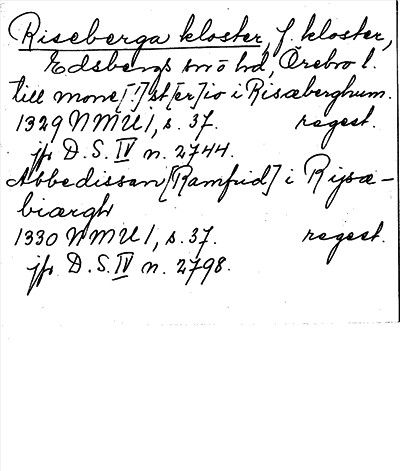 Riseberga kloster, f. kloster,
Edsbergs sn o hd, Örebro l.
till mone[!]st[er]io i Risæberghum.
1329 NMU 1, s. 37. regest.
jfr D.S. IV n. 2744.
Abbedissan [Ramfrid] i Rysæ-
biærgh
1330 NMU 1, s. 37. regest.
jfr D.S. IV n. 2798.